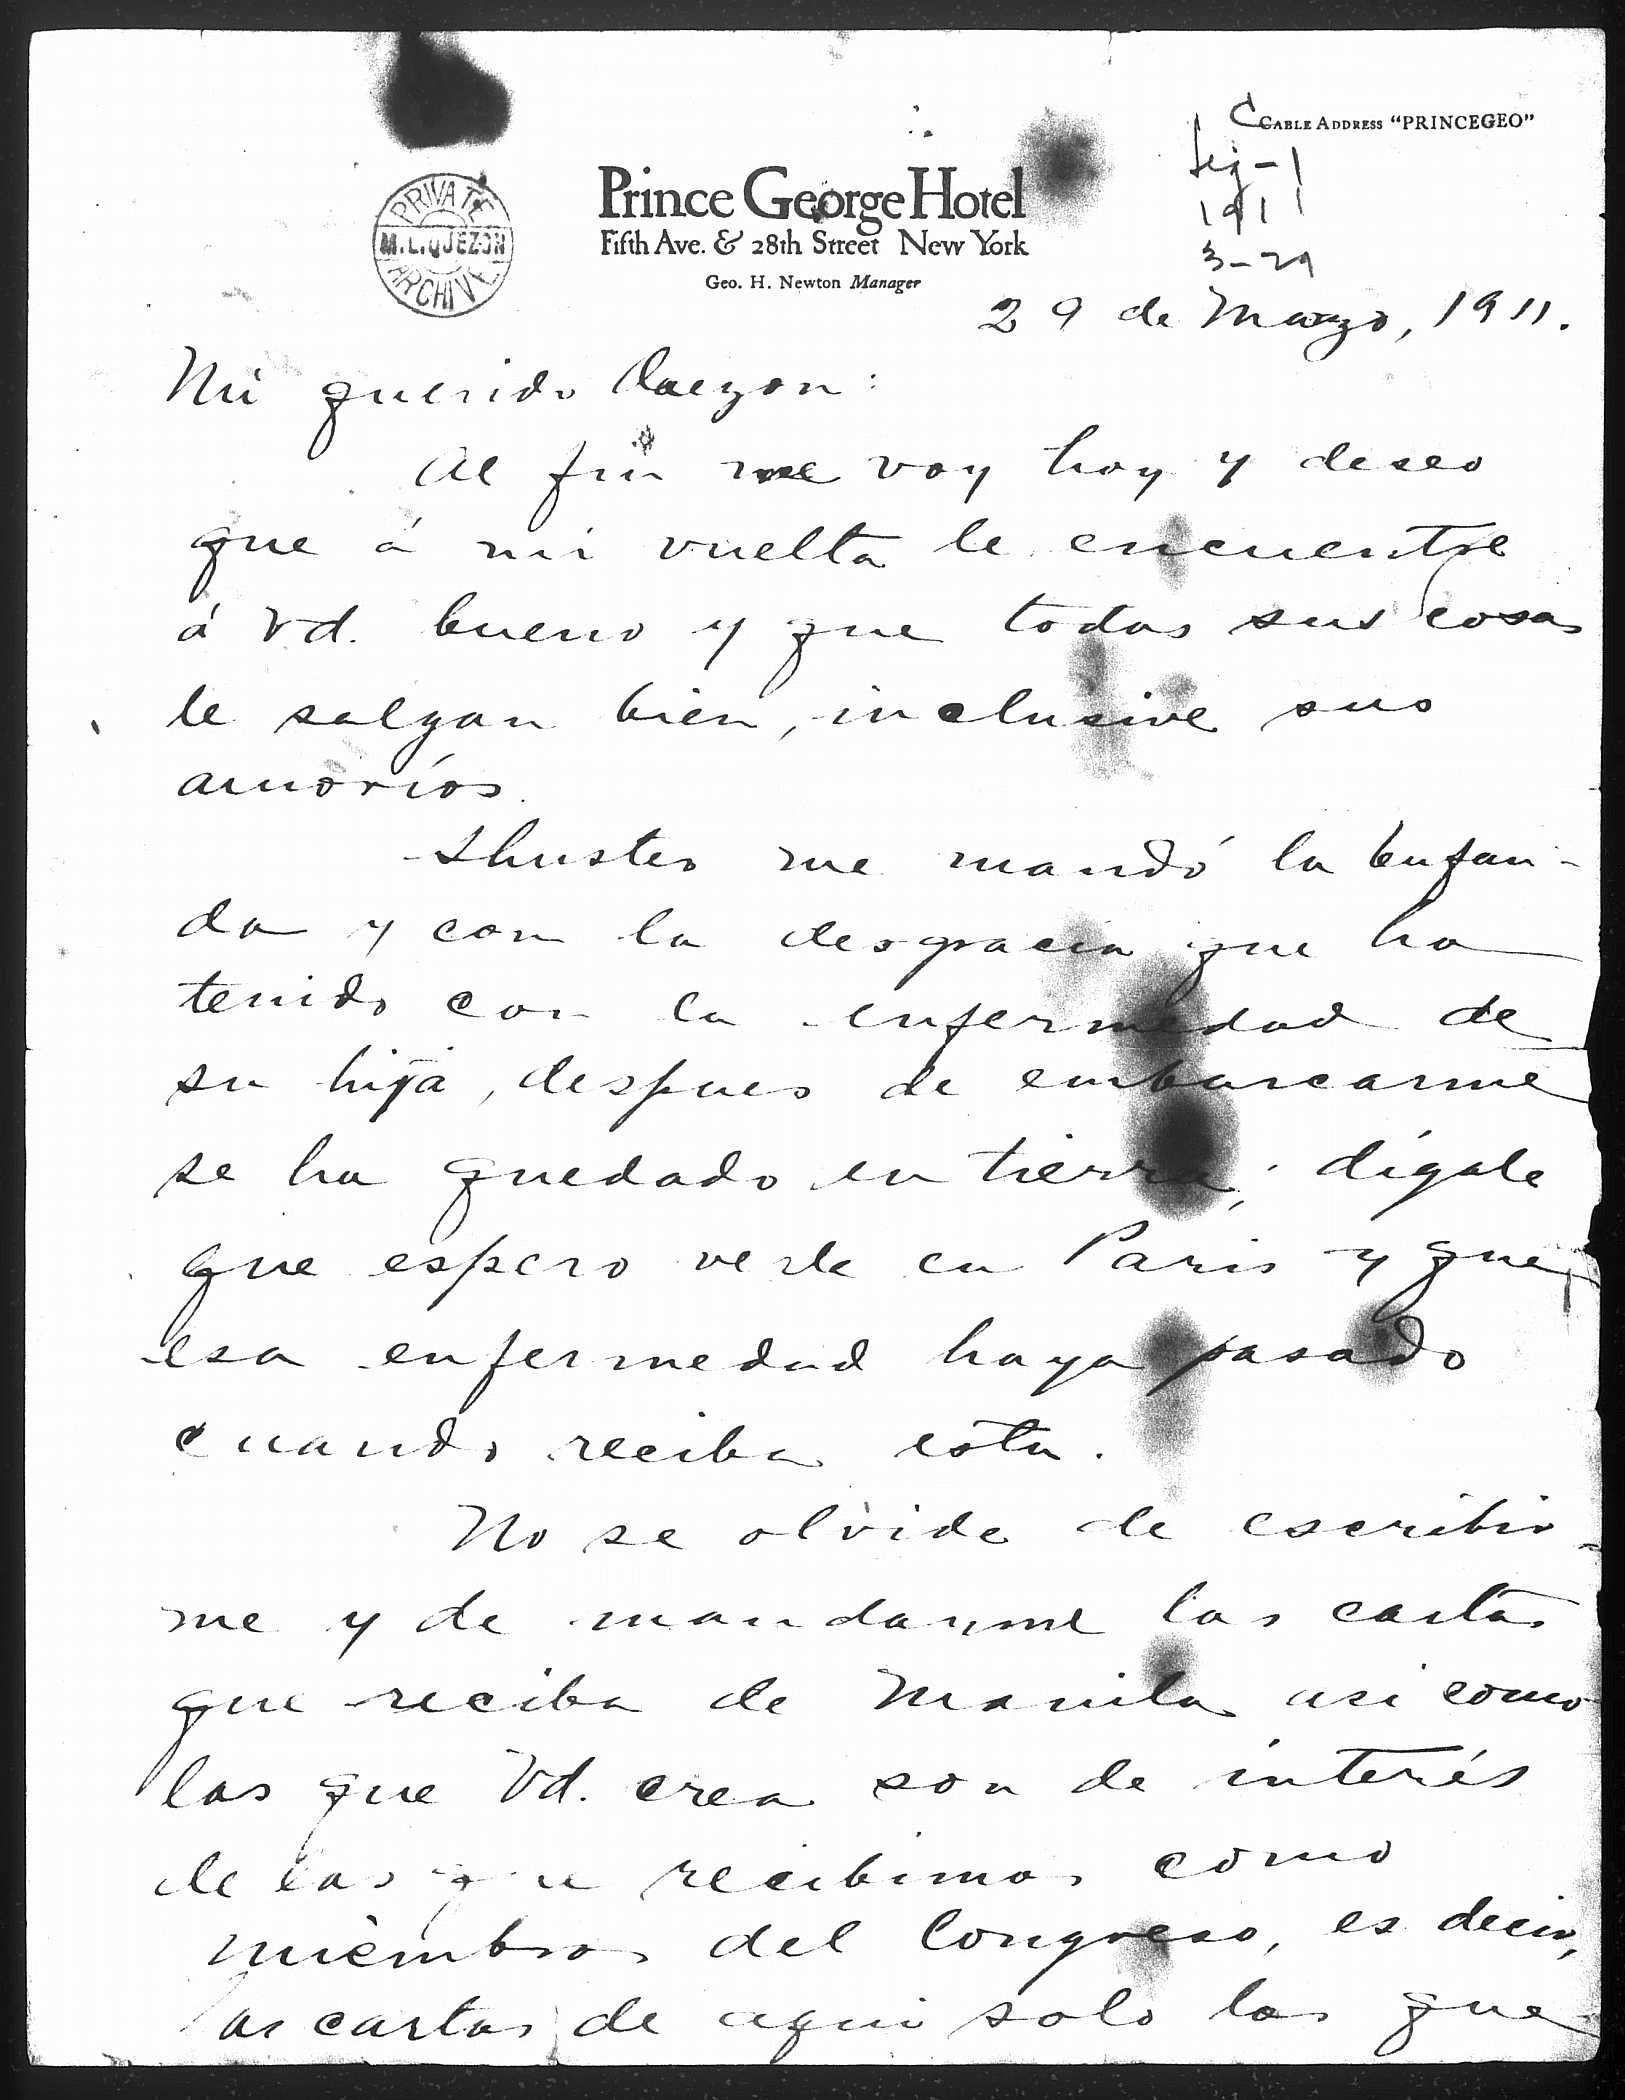 CABLE ADDRESS "PRINCEGEO"
C
Leg-1
1911
3-29
PRIVATE
M.L.QUEZON
ARCHIVE
Prince George Hotel
Fifth Ave. & 28th Street New York
Geo. H. Newton Manager
29 de Marzo, 1911.
Mi querido Quezon:
Al fin me voy hoy y deseo
que á mi vuelta le encuentre
á Vd. bueno y que todas sus cosas
le salgan bien, inclusive sus
amoríos.
Shuster me mandó la bufan-
da y con la desgracia que ha
tenido con la enfermedad de
su hija, despues de embarcarme
se ha quedado en tierra; dígale
que espero verle en Paris y que
esa enfermedad haya pasado
cuando reciba esta.
No se olvide de escribir-
me y de mandarme las cartas
que reciba de Manila asi como
las que Vd. crea son de interés
de las que recibimos como
miembros del Congreso, es decir,
las cartas de aqui solo las que